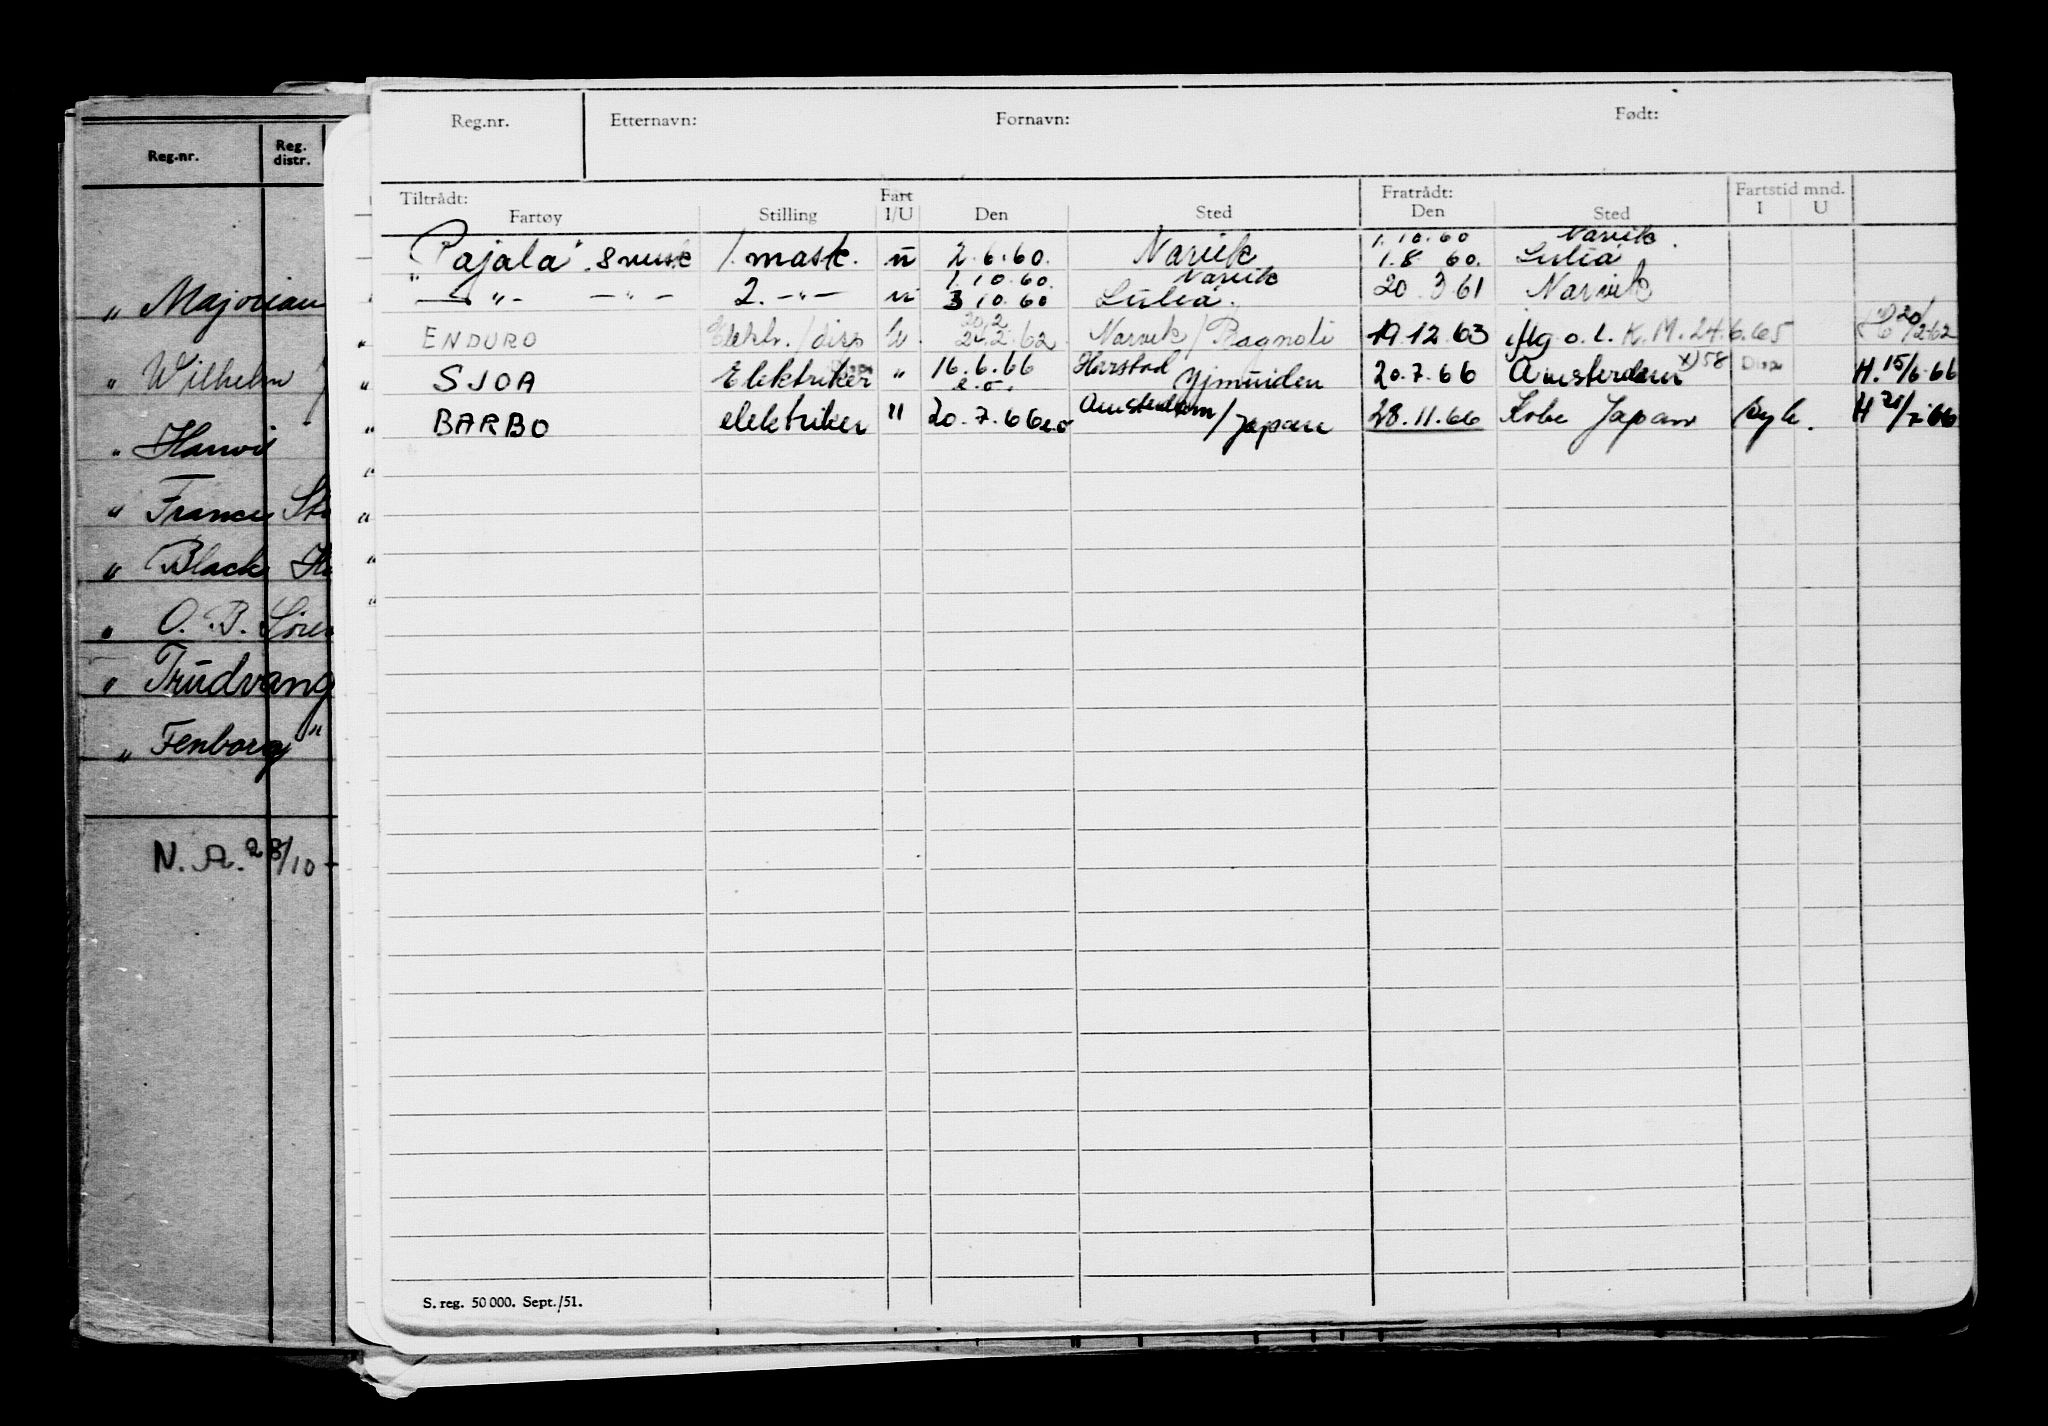 Reg.nr. Etternavn: Fornavn: Født:
Tiltrådt: Fart Fratrådt: Fartstid mnd.
Fartøy Stilling I/U Den Sted Den Sted I U
1.10.60 Narvik.
"Pajala" svensk 1. mask. u 2.6.60. Narvik 1.8 60. Luleå
1.10.60. Narvik
— " — — " — 2. — " — u 3 10.60 Luleå. 20.3.61 Narvik
20 2
ENDURO Elektr./ u. 2.62. Narvik / Bagnoli 19.12.63 iflg o.l. K.M. 24.6.65 20/2-62
SJOA Elektriker " 16.6.66 Harstad Yjmuiden 20.7.66 Amsterdam x) 58 Disp H. 15/6-66
e.o.
BARBO elektriker " 20.7.66 e.o Amsterdam / Japan 28.11.66 Kobe Japan syk. H 21/7-66
S. reg. 50 000. Sept./51.
Reg.nr. Reg. distr.
" Majorian
" Wilhelm
"
" France
" Black
" O. B. Søren
" Trudvang
" Fenborg "
N. A. 28/10 -